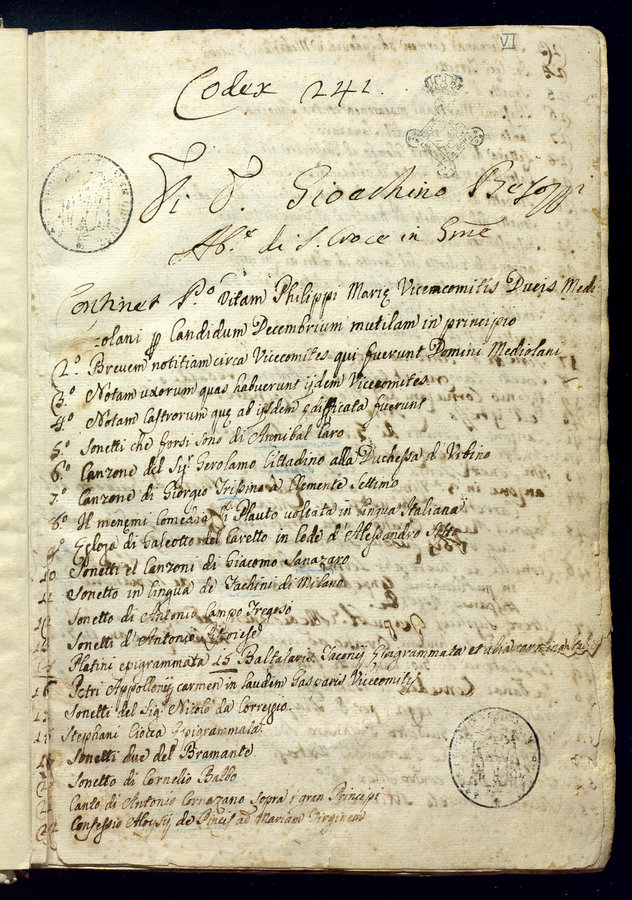 VI
Codex 242.
Di D. Gioachino Besozzi
Ab.e di S. Croce in Gme
Continet P.o Vitam Philippi Marię Vicecomitis Ducis Medi
olani p Candidum Decembrium mutilam in principio
2.o Brevem notitiam circa Vicecomites qui fuerunt Domini Mediolani
3.o Notam uxorum quas habuerunt ijdem Vicecomites
4.o Notam Castrorum quę ab ijsdem ędifficata fuerunt
5.o Sonetti che forsi sono di Annibal Caro
6.o Canzone del Sig.r Gerolamo Cittadino alla Duchessa d Urbino
7.o Canzone di Giorgio Trissino a Clemente Settimo
8.o Il menęmi Comedia di Plauto voltata in lingua Italiana
9.o Geloso di Galeotto del Caretto in lode d'Alessandro
10 Sonetti et Canzoni di Giacomo Sanazaro
Sonetto in lingua de Fachini di Milano
Sonetto di Antonio Campo Fregoso
Sonetti d'Antonio Pistoiese
Platini epigrammata 15 Baltasaris Taconij Epigrammata et alia carmina
16 Petri Appollonij carmen in laudem Gasparis Vicecomitis
Sonetti del Sig.r Nicolò da Correggio.
Stephani Ciocca Epigrammata
Sonetti due del Bramante
Sonetto di Cornelio Balbo
Canto di Antoneo Cornazano Sopra i gran Principi
Confessio Aloysij de ad Mariam Virginem